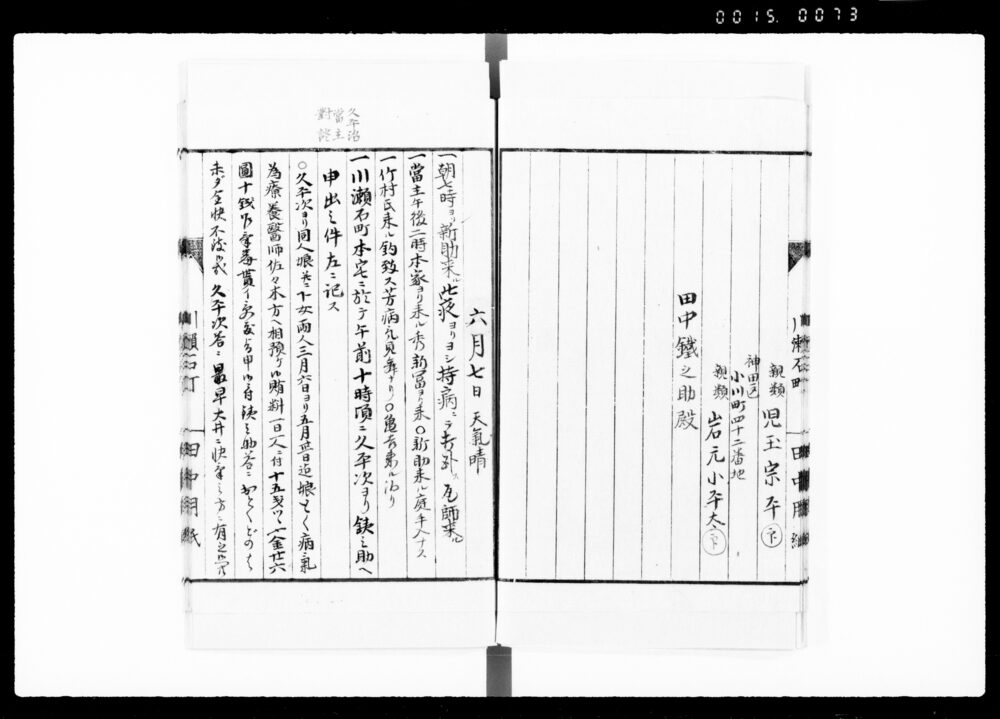 0015. 0073
親類 児玉宗平
神田區
小川町四十二番地
親類 岩元小平太
田中鐵之助殿
久平治
當主
對談
六月七日 天氣晴
一朝七時ヨリ新助来ル此夜ヨリヨシ持病ニテ 尾師来ル
一當主午後二時本家ヨリ来ル秀新冨ヨリ来〇新助来ル庭手入ナス
一竹村氏来ル釣致ス芳病氣見舞ナリ〇亀吉来ル泊リ
一川瀬石町本宅ニ於テ午前十時頃ニ久平次ヨリ鉄之助ヘ
申出之件左ニ記ス
〇久平次ヨリ同人娘并ニ下女両人三月六日ヨリ五月 日迄娘とく病氣
為療養醫師佐々木方ヘ相預ケル賄料一日一人ニ付十五戋ツヽ金廿六
圓十銭 貰イ 申 付鉄之助答ニ おとくどのハ
未ダ全快不致 久平次答ニ最早大丈ニ快 方ニ有之
川瀬石町
田中用紙